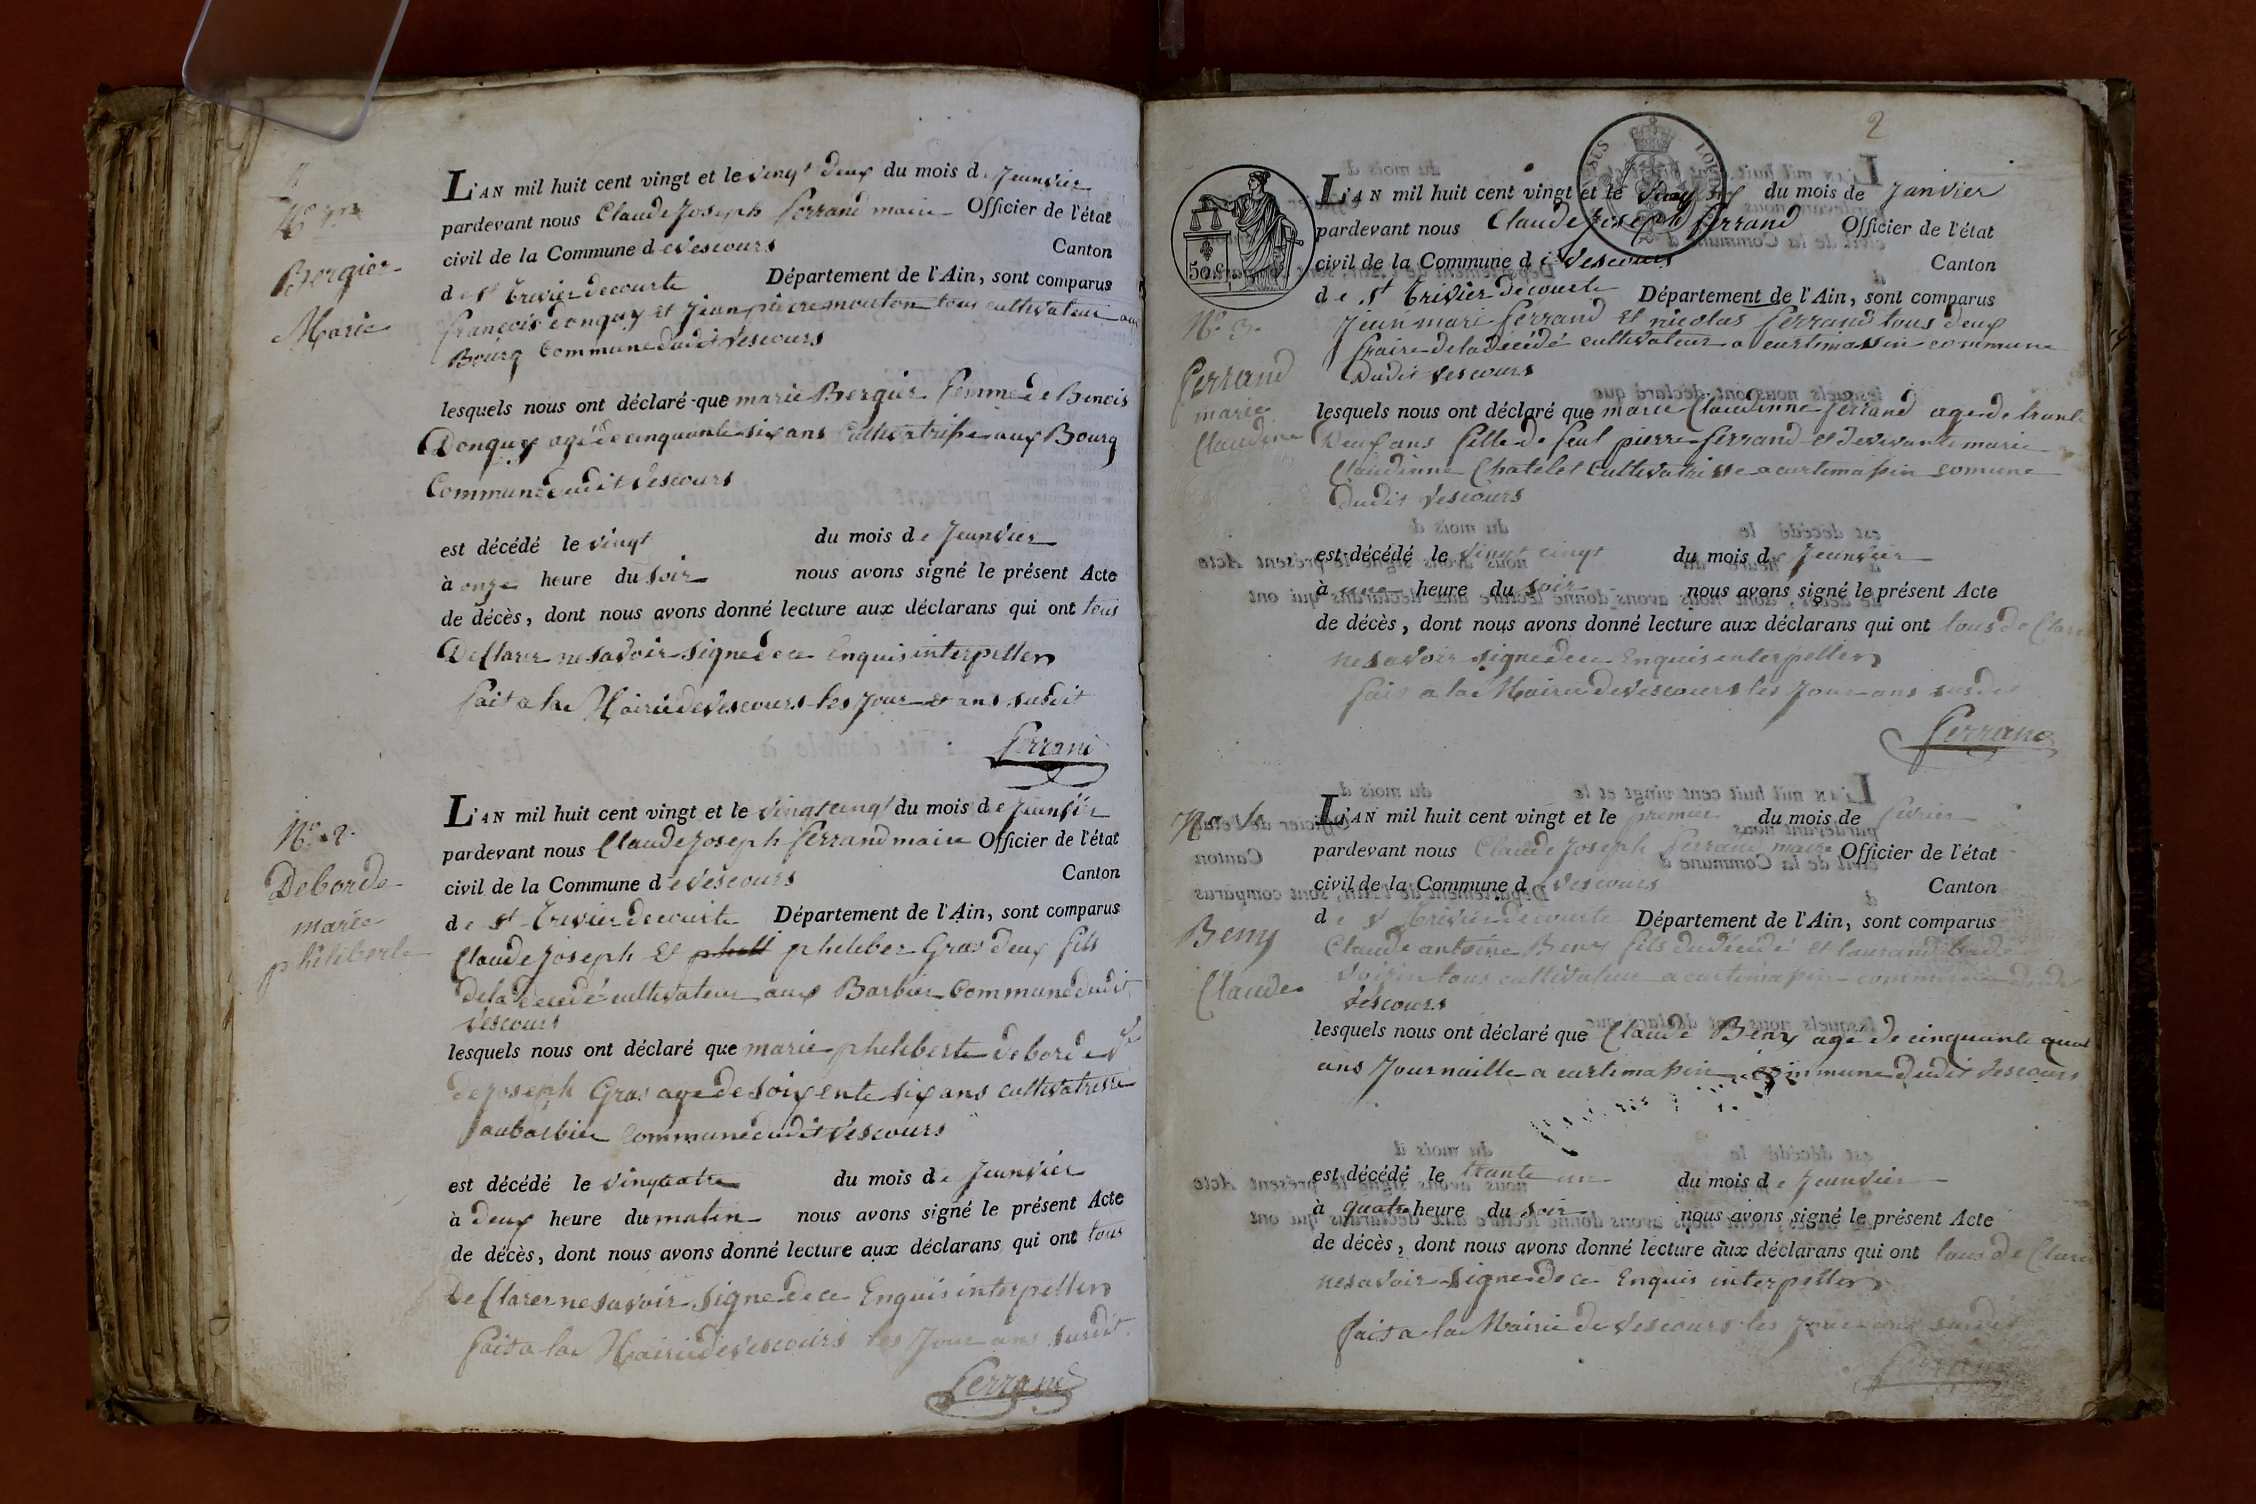 Bergier
Marie
L'AN mil huit cent vingt et le vingt deux du mois de Jeanvier
pardevant nous Claude Joseph ferrand maire Officier de l'état
civil de la Commune de vescours Canton
de St trivier decourte Département de l'Ain, sont comparus
francois donguy et Jean pierre mouton tous cultivateur aux
Bourg Commune dudit vescours
lesquels nous ont déclaré que marie Bergier femme de Benois
Donguy agé de cinquante six ans Cultivatrisse aux Bourg
Commune dudit vescours
est décédé le vingt du mois de Jeanvier
à onze heure du soir nous avons signé le présent Acte
de décès, dont nous avons donné lecture aux déclarans qui ont tous
De Clarer ne savoir signe de ce Enquis interpeller
fait a la Mairie de vescours les Jour et ans susdit
ferrand
No 2.
Deborde
marie
pheliberte
L'AN mil huit cent vingt et le vingt cinqt du mois de Jeanvier
pardevant nous Claude Joseph ferrand maire Officier de l'état
civil de la Commune de vescours Canton
de St trivier decourte Département de l'Ain, sont comparus
Claude Joseph et pheleber Gras deux fils
de la decedé cultivateur aux Barbier Commune dudit
vescours
lesquels nous ont déclaré que marie pheleberte deborde ve
de Joseph Gras age de soixente six ans cultivatrisse
au barbier Commune dudit vescours
est décédé le vingtcatre du mois de Jeanvier
à deux heure du maten nous avons signé le présent Acte
de décès, dont nous avons donné lecture aux déclarans qui ont tous
De Clarer ne savoir signe de ce Enquis interpeller
fait a la Mairie de vescours les Jour ans susdit
ferrand
2
50 c.
No 3.
ferrand
marie
Claudine
L'AN mil huit cent vingt et le du mois de Janvier
pardevant nous Claude Joseph ferrand Officier de l'état
civil de la Commune de vescours Canton
de St trivier decourte Département de l'Ain, sont comparus
Jean mari ferrand et nicolas ferrand tous deux
fraire de la décédé cultivateur a curtimassin commune
Dudit vescours
lesquels nous ont déclaré que marie Claudinne ferrand age de trante
Deux ans fille de feut pierre ferrand et de vivante marie
Claudinne Chatelet Cultivatrisse a curtimassin comune
Dudit vescours
est décédé le vingt cinqt du mois de Jeanvier
à une heure du soir nous avons signé le présent Acte
de décès, dont nous avons donné lecture aux déclarans qui ont tous de Clarer
ne savoir signe de ce Enquis interpeller
fait a la Mairie de vescours les Jour ans susdit
ferrand
Beny
Claude
L'AN mil huit cent vingt et le premier du mois de fevrier
pardevant nous Claude Joseph ferrand maire Officier de l'état
civil de la Commune de vescours Canton
de St trivier decourte Département de l'Ain, sont comparus
Claude antoine Beny fils du décédé et laurand
voizin tous cultivateur a curtimassin commune dudit
vescours
lesquels nous ont déclaré que Claude Beny age de cinquante quat
ans Journaille a curtimassin commune dudit vescours
est décédé le trante un du mois de Jeanvier
à quatre heure du soir nous avons signé le présent Acte
de décès, dont nous avons donné lecture aux déclarans qui ont tous de Clarer
ne savoir signe de ce Enquis interpeller
fait a la Mairie de vescours les Jour ans susdit
ferrand